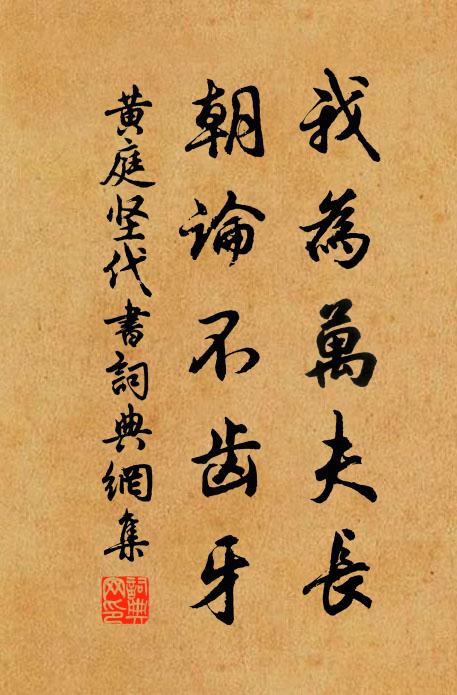 我為萬夫長
朝論不齿牙
黄庭坚代書詞典網集
詞典网印